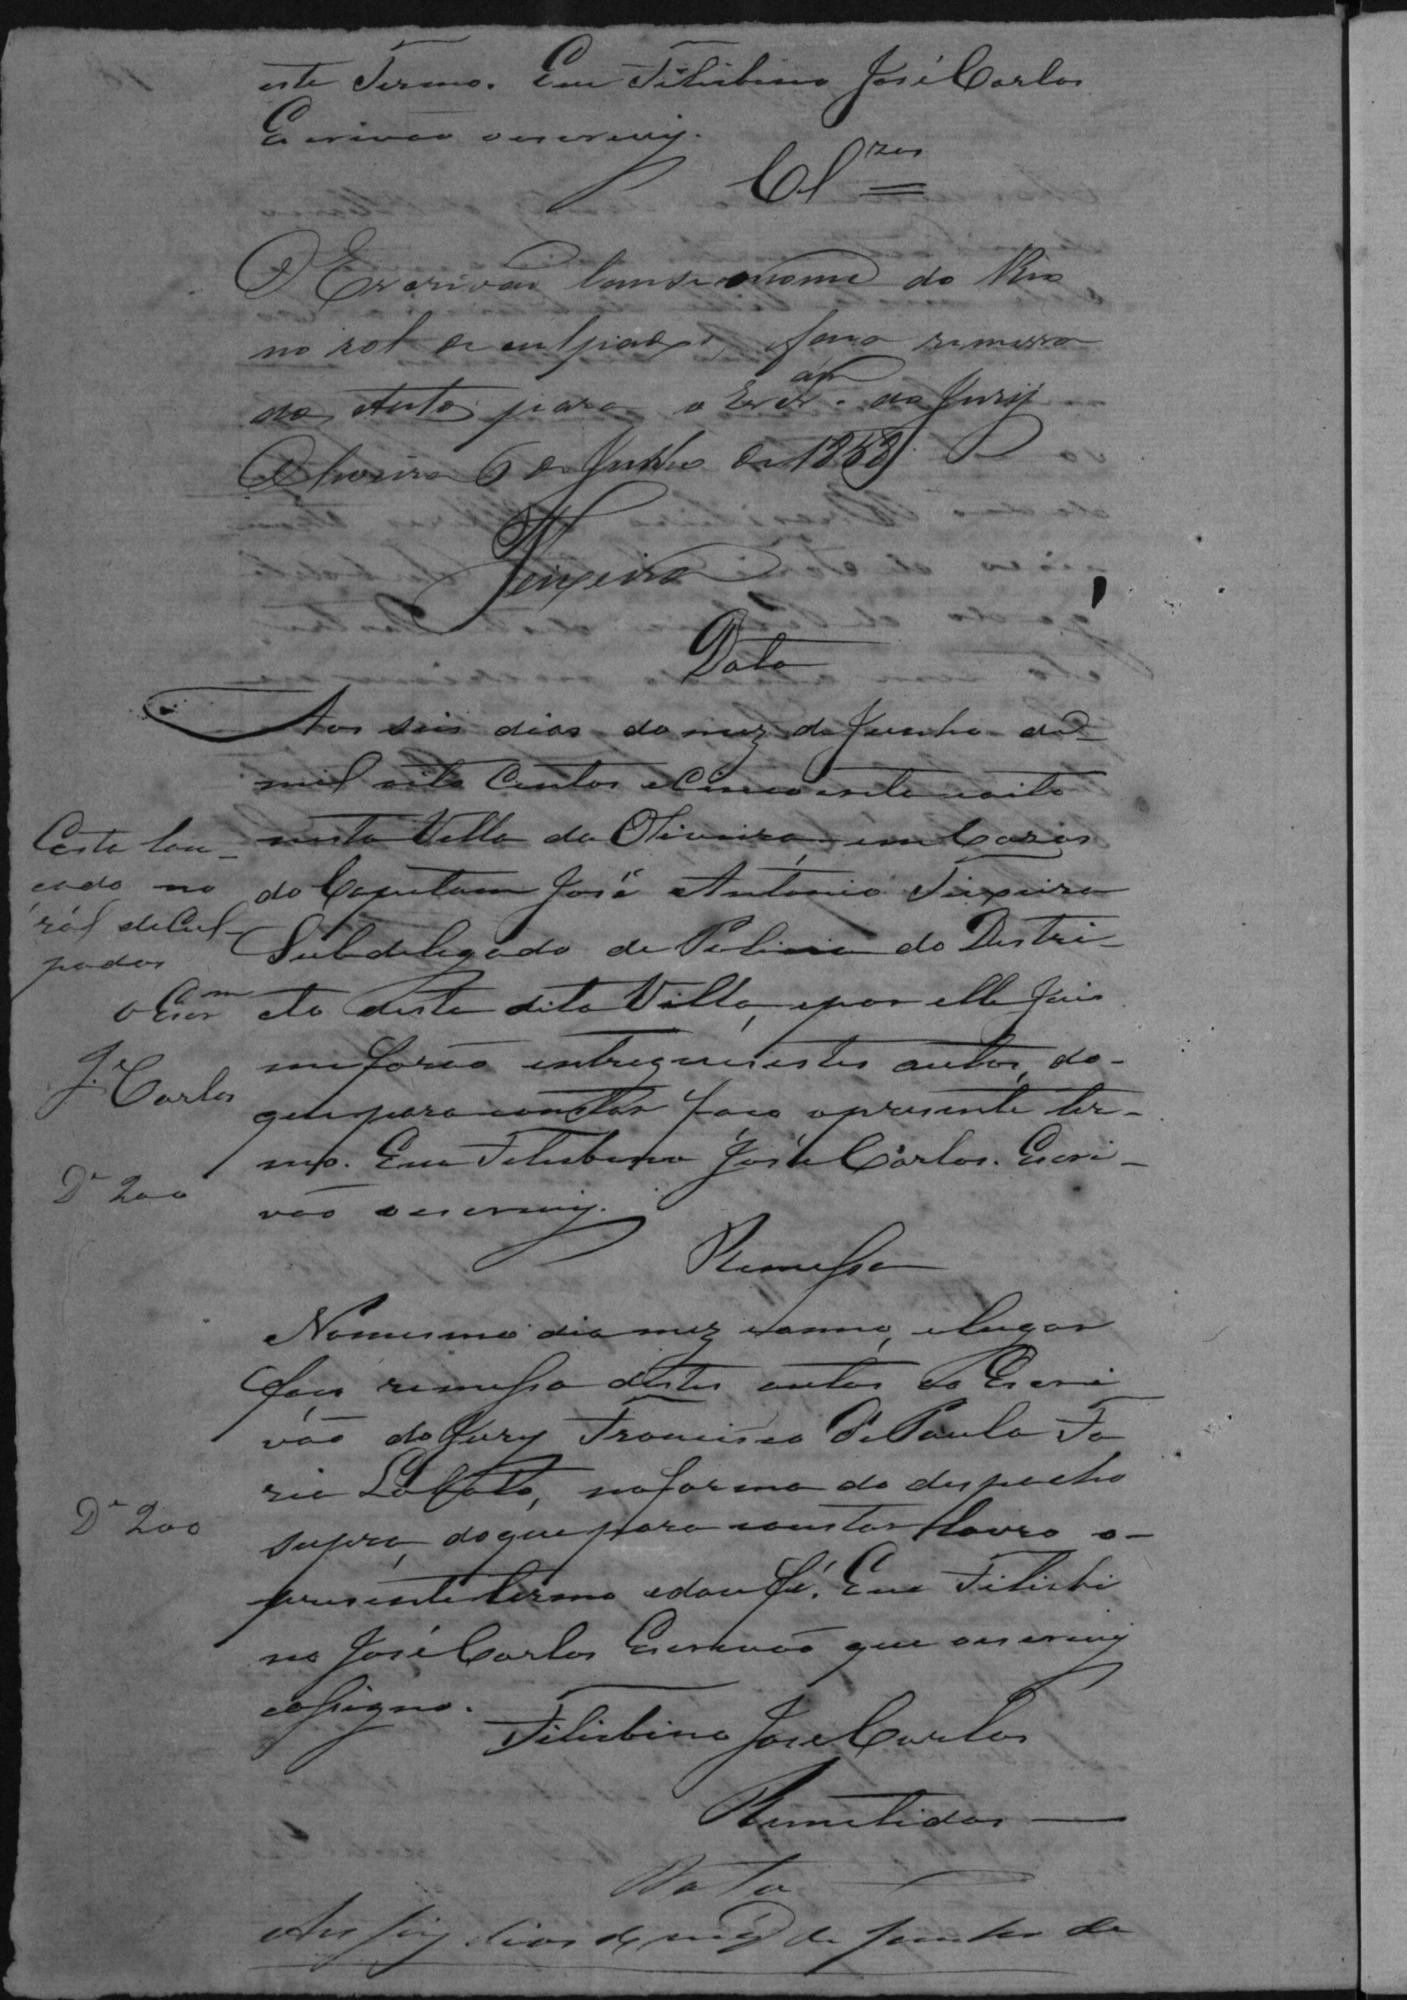 este Termo. Eu Felisbino José Carlos
Escrivão o escrevy.
Cl.zos
O Escrivão lanse o nome do Reo
no rol de culpados, e faça remessa
dos Autos para o Escr.am do Jury
Oliveira 6 de Junho de 1858
Teixeira
Data
Aos seis dias do mez de Junho de
mil oito Centos e Cincoenta e oito
nesta Villa da Oliveira, em Cazas
do Capitam José Antonio Teixeira
Subdelegado de Policia do Distri-
cto desta dita Villa, e por elle Juis
me forão entregues estes autos, do-
que para constar faço o presente ter-
mo. Eu Felisbino José Carlos. Escri-
vão o escrevy.
Está lan-
cado no
ról de Cul-
pados
o Escr.m
J. Carlos
Dª 200
Remessa
No mesmo dia mez e anno, e lugar
faço remessa destes autos ao Escri
vão do Jury Francisco de Paula Fa
ria Lobato, na forma do despacho
supra, do que para constar lavro o-
presente termo e dou fé. Eu Felisbi
no José Carlos Escrivão que o escrevy
e assigno. Felisbino José Carlos
Dª 200
Remetidos
Data
Aos seis dias do mez de Junho de